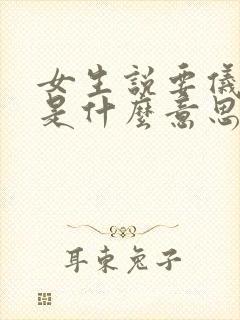 女生說要儀
是什麼意思
耳東兔子